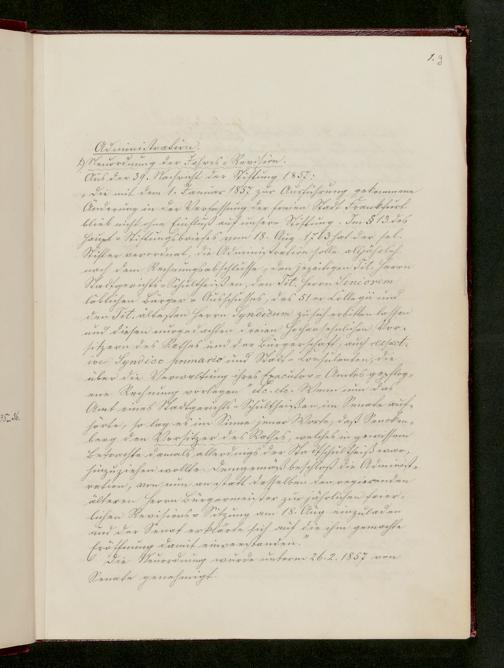 1.
Administration.
1) Neuordnung der Jahres-Revision.
Aus der 39. Nachricht der Stiftung 1857:
"Die mit dem 1. Januar 1857 zur Ausführung gekommene
Änderung in der Verfassung der freien Stadt Frankfurt
blieb nicht ohne Einfluß auf unsere Stiftung. Im § 13 des
Haupt-Stiftungsbriefes vom 18. Aug. 1763 hat der sel.
Stifter verordnet, die Administration solle alljährlich
nach dem Rechnungsabschlusse, den jezeitigen Tit. Herrn
Stadtgerichts-Schultheißen, den Tit. Herrn Seniorem
löblichen Bürger-Ausschusses, des 51er Collegii und
den Tit. ältesten Herrn Syndicum zu sich erbitten lassen
und diesen dreien Hochansehnlichen Vor-
sitzern des Rathes und der Bürgerschaft, auch respect.
Syndico primario und Stadt-Consulenten, die
über die Verwaltung ihres Executor-Amtes
eine Rechnung vorlegen" etc. etc. Wenn nun das
Amt eines Stadtgerichts-Schultheißen im Senate auf-
hörte, so lag es im Sinne jener Worte, daß Senken-
berg den Vorsitzer des Rathes, welches in gewissem
Betrachte damals allerdings der Stadtschultheiß war,
hinzuziehen wollte. Demgemäß beschloß die Administ-
ration, von nun an statt desselben den regierenden
älteren Herrn Bürgermeister zur jährlichen feier-
lichen Revisions-Sitzung am 18. Aug. einzuladen
und der Senat erklärte sich auf die ihm gemachte
Eröffnung damit einverstanden."
Die Neuordnung wurde unterm 26.2.1857 vom
Senate genehmigt.